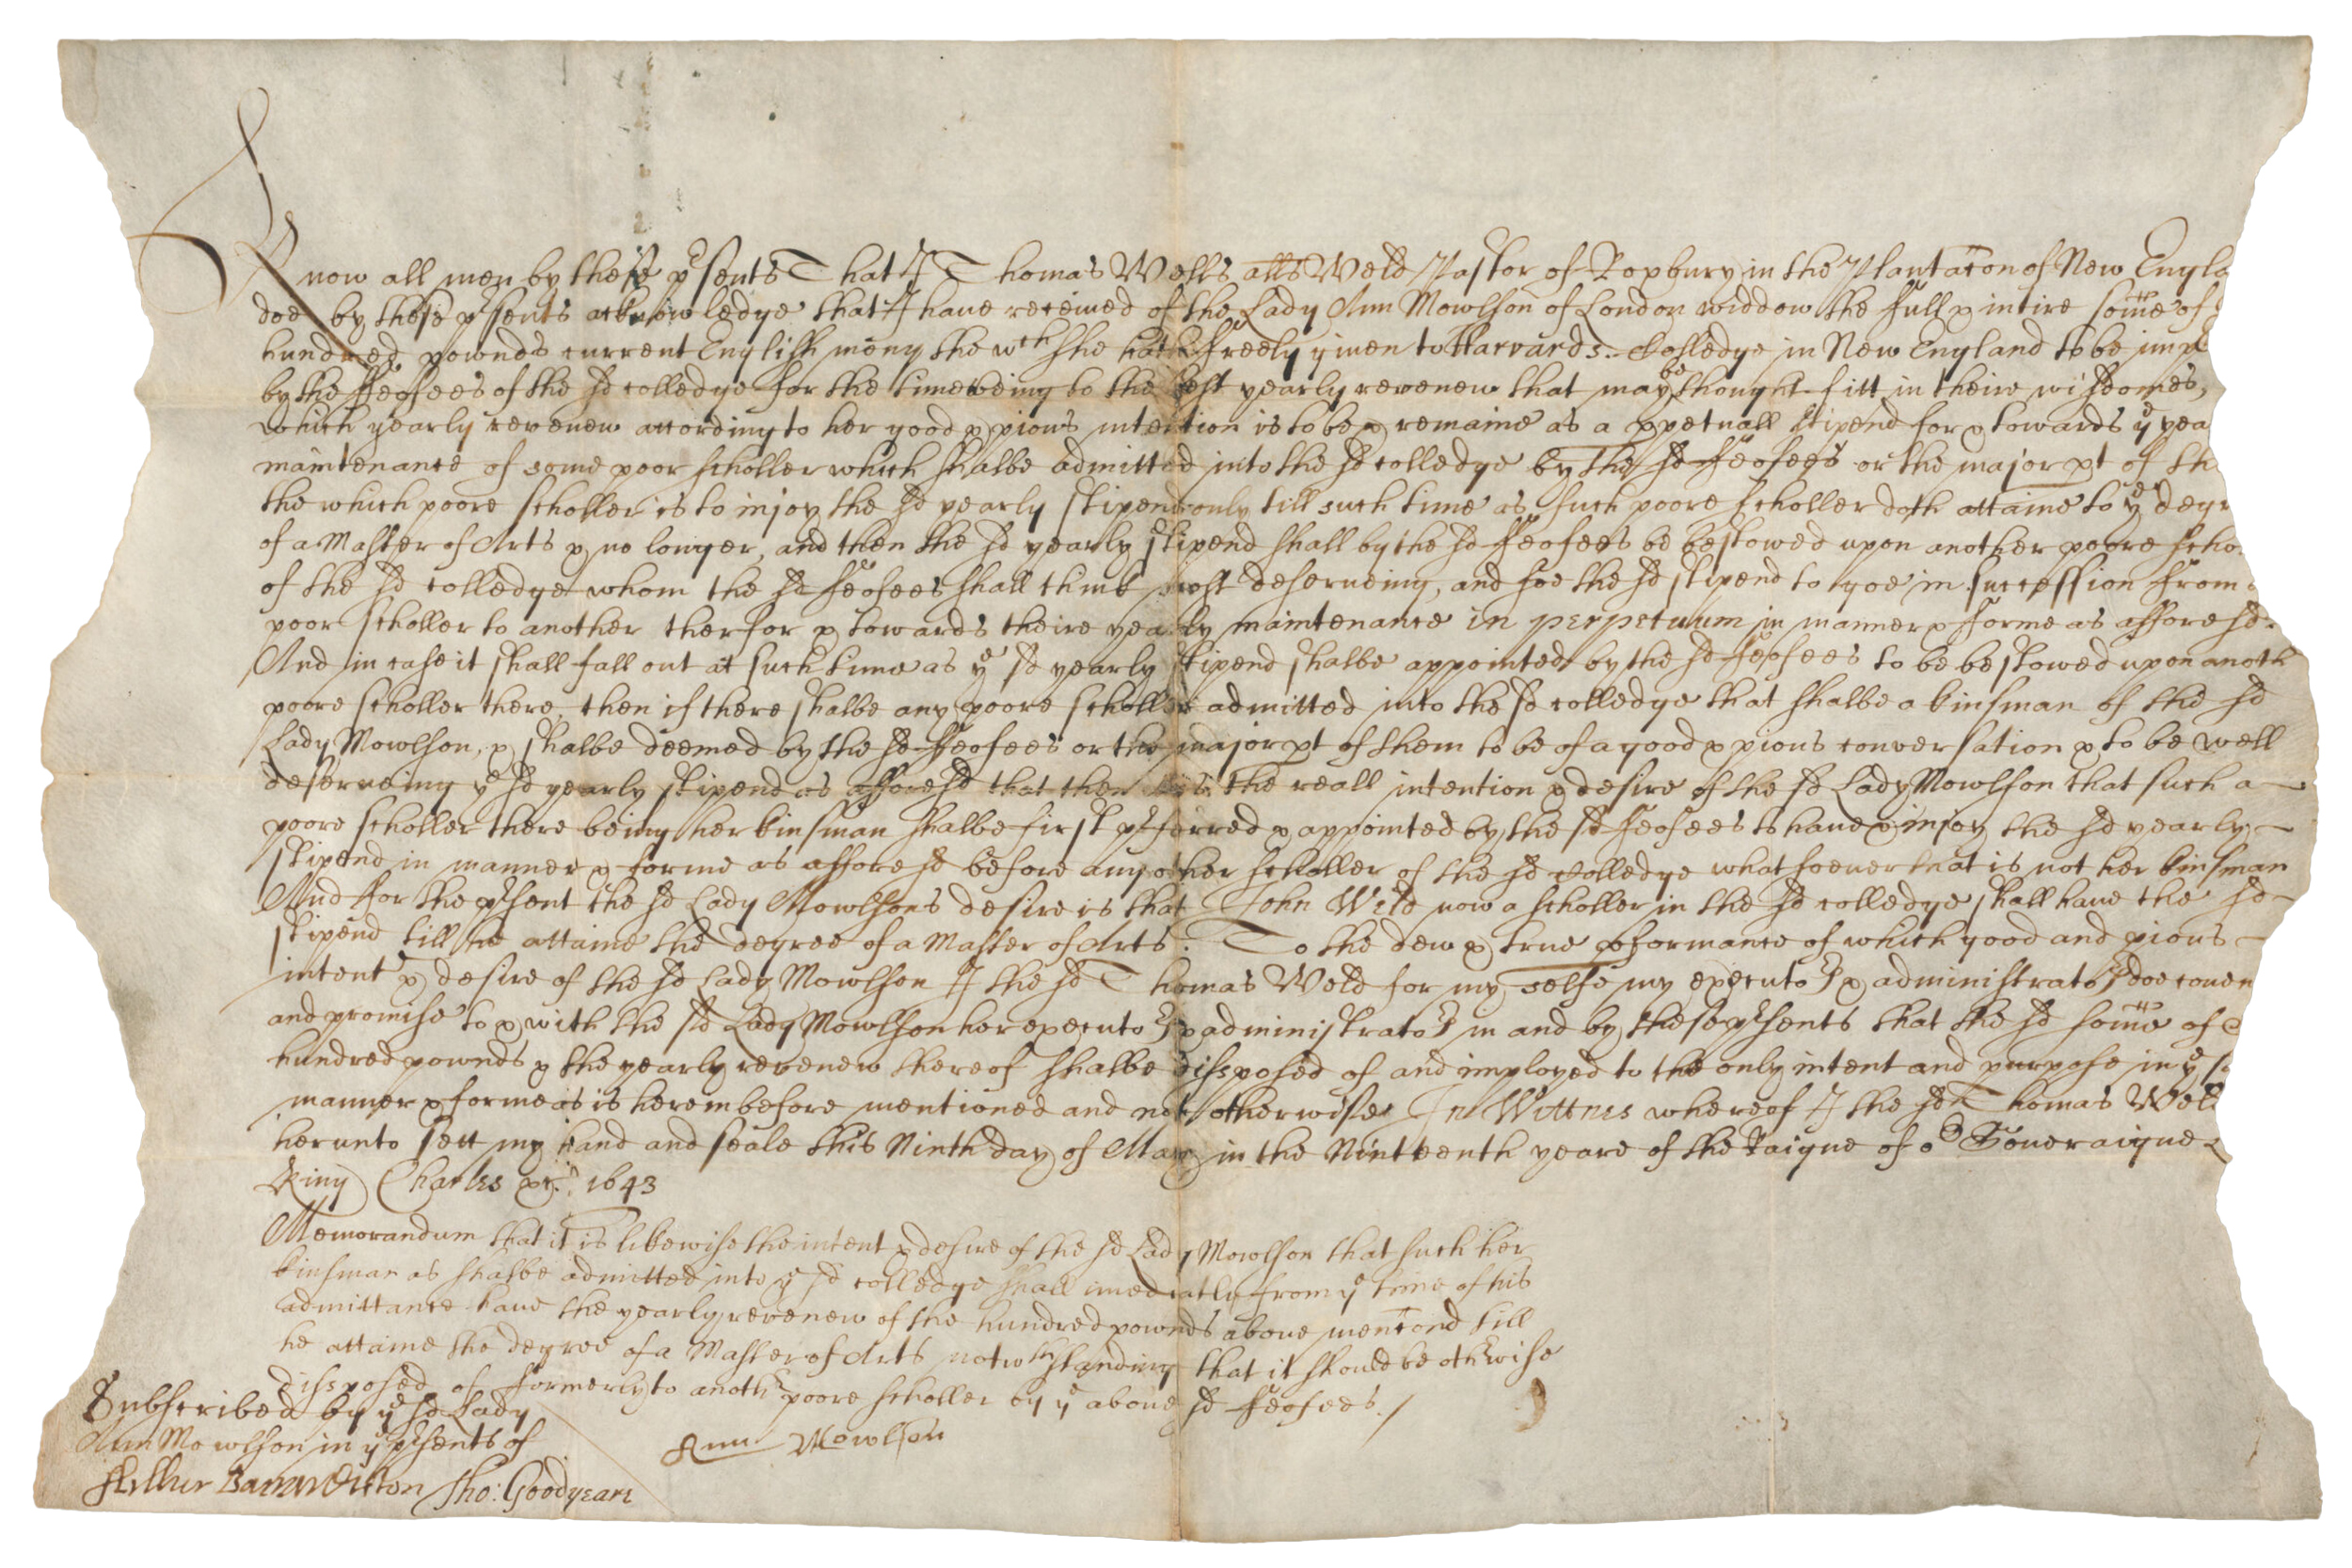 Know all men by these psents That I Thomas Wells alls Weld Pastor of Roxbury in the Plantacon of New Engla
doe by these psents acknowledge that I have received of the Lady Ann Mowlson of London widdow the full & intire some of
hundred pownds current English mony the wch she hath freely given to Harvards Colledge in New England to be impl
by the ffeofees of the sd colledge for the time being to the best yearly revenew that may be thought fitt in theire wisdomes,
which yearly revenew according to her good & pious intention is to be & remaine as a ppetuall stipend for & towards ye yea
maintenance of some poor scholler which shalbe admitted into the sd colledge by the sd feofees or the major pt of th
the which poore scholler is to injoy the sd yearly stipend only till such time as such poore scholler doth attaine to ye degr
of a Master of Arts & no longer, and then the sd yearly stipend shall by the sd feofees be bestowed upon another poore scho
of the sd colledge whom the sd feofees shall think most deserveing, and soe the sd stipend to goe in succession from
poor scholler to another therfor & towards theire yearly maintenance in perpetuum in manner & forme as affore sd.
And in case it shall fall out at such time as ye sd yearly stipend shalbe appointed by the sd feofees to be bestowed upon anoth
poore scholler there, then if there shalbe any poore scholler admitted into the sd colledge that shalbe a kinsman of the sd
Lady Mowlson, & shalbe deemed by the sd feofees or the major pt of them to be of a good & pious conversation & to be well
deserveing ye sd yearly stipend as affore sd that then it is the reall intention & desire of the sd Lady Mowlson that such a
poore scholler there being her kinsman shalbe first pferred & appointed by the sd feofees to have & injoy the sd yearly
stipend in manner & forme as affore sd before any other scholler of the sd colledge whatsoever that is not her kinsman
And for the psent the sd Lady Mowlsons desire is that John Weld now a scholler in the sd colledge shall have the sd
stipend till he attaine the degree of a Master of Arts. To the dew & true pformance of which good and pious
intent & desire of the sd Lady Mowlson I the sd Thomas Weld for my selfe my executors & administrators doe coven
and promise to & with the sd Lady Mowlson her executors & administrators in and by these psents that the sd some of
hundred pownds & the yearly revenew thereof shalbe disposed of and imployed to the only intent and purpose in ye
manner & forme as is herein before mentioned and not otherwise In Wittnes whereof I the sd Thomas Weld
herunto sett my hand and seale this Ninth day of May in the Ninteenth yeare of the Raigne of or Soveraigne
King Charles &c. 1643
Memorandum that it is likewise the intent & desire of the sd Lady Mowlson that such her
kinsman as shalbe admitted into ye sd colledge shall imediatly from ye time of his
admittance have the yearly revenew of the hundred pownds above mentiond till
he attaine the degree of a Master of Arts notwthstanding that it should be otherwise
disposed of formerly to anothr poore scholler by ye above sd feofees./
Subscribed by ye sd Lady
Ann Mowlson in ye psents of
Ann Mowlson
Arthur Barnardiston Tho: Goodyeare